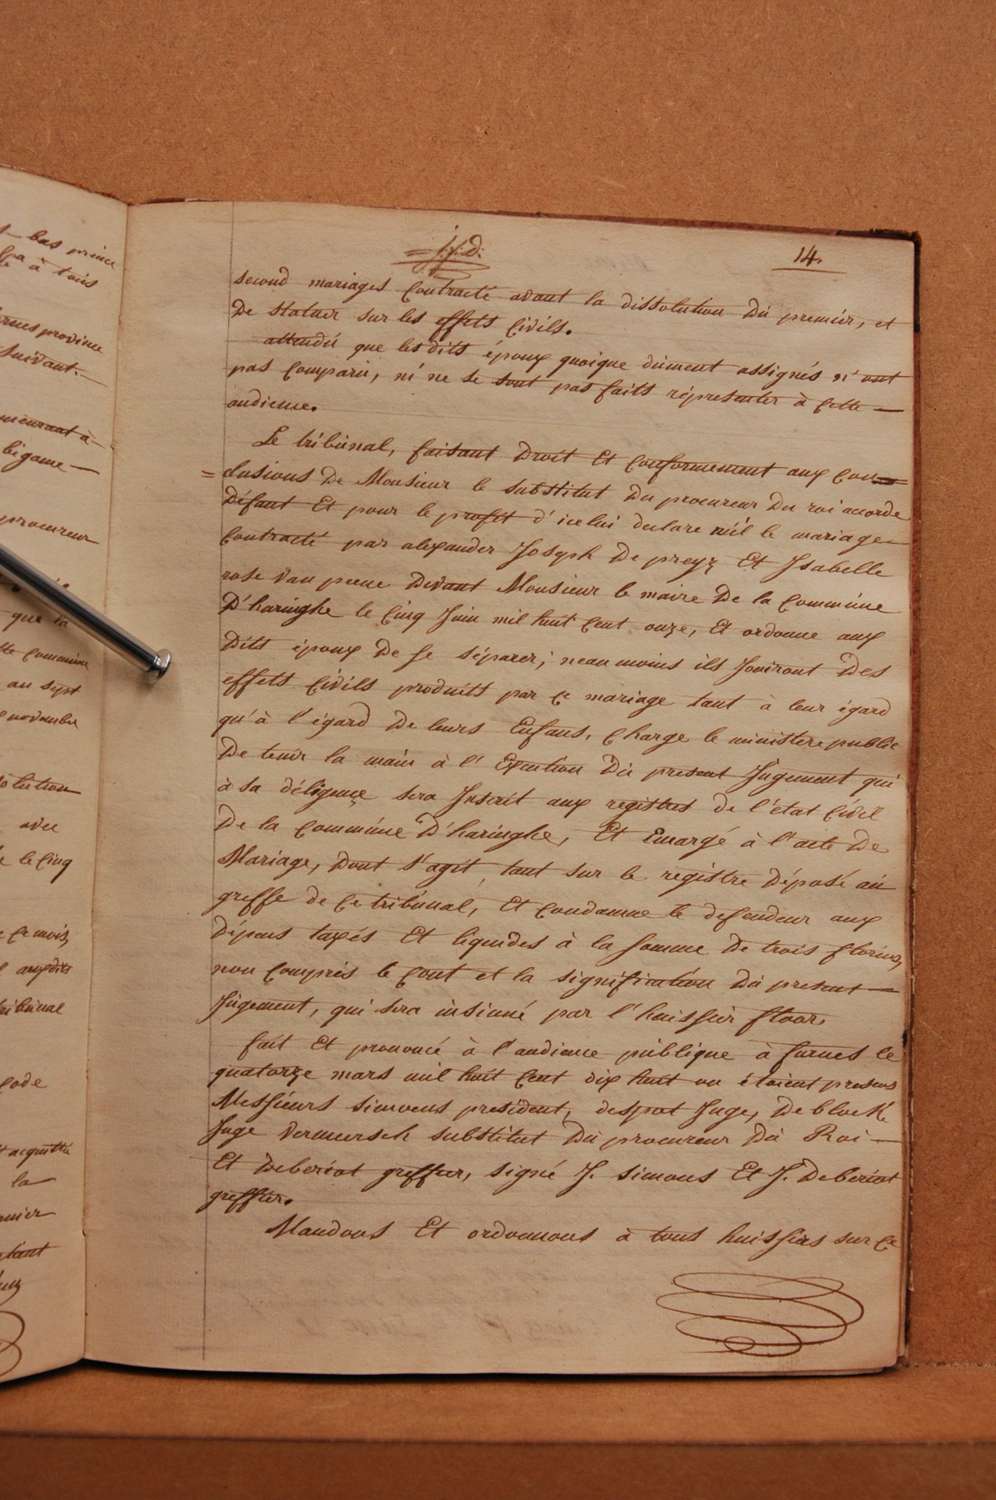 14.
second mariages contracté avant la dissolution du premier, et
De statuer sur les effets civils.
attendu que lesdits époux quoique dument assignés n'ont
pas comparu, ni ne se sont pas faits répresenter à cette
audience.
Le tribunal, faisant Droit Et conformement aux con=
=clusions De Monsieur le substitut Du procureur Du roi accorde
Défaut Et pour le profit d'icelui declare nul le mariage
contracté par alexander Joseph De preyz Et Isabelle
rose van peene Devant Monsieur le maire De la commune
D'haringhe le cinq Juin mil huit cent onze, Et ordonne aux
Dits époux De se séparer; neanmoins ils Jouiront Des
effets civils produits par ce mariage tant à leur égard
qu'à l'égard De leurs Enfans, charge le ministere public
De tenir la main à l'Execution Du present Jugement qui
à sa déligence sera Inscrit aux registres de l'état civil
De la commune D'haringhe, Et Emargé à l'acte De
Mariage, Dont s'agit, tant sur le registre Déposé au
greffe de ce tribunal, Et condamne le defendeur aux
Dépens taxés Et liquides à la somme De trois florins,
non compris le cout et la signification Du present
Jugement, qui sera insinué par l'huissier floor.
fait Et prononcé à l'audience publique à furnes le
quatorze mars mil huit cent dix huit ou étoient presens
Messieurs simoens president, despot Juge, De block
Juge vermeersch substitut Du procureur Du Roi
Et Deberiot greffier, signé J. simons Et J. Deberiot
greffier.
Mandons Et ordonnons à tous huissiers sur ce